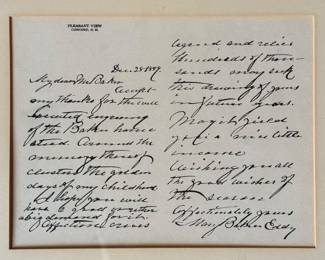 PLEASANT VIEW
CONCORD, N. H.
Dec. 28 1897.
My dear Mr Baker
Accept
my thanks for the well
executed engraving
of the Baker home
stead. Around the
memory thereof
cluster the golden
days of my childhood.
I hope you will
have a good
big demand for it.
Affection
legend and relics
Hundreds of thou-
sands may seek
this drawing of yours
in future years.
May it yield
you a nice little
income
Wishing you all
the good wishes of
the season
Affectionately yours
Mary Baker Eddy